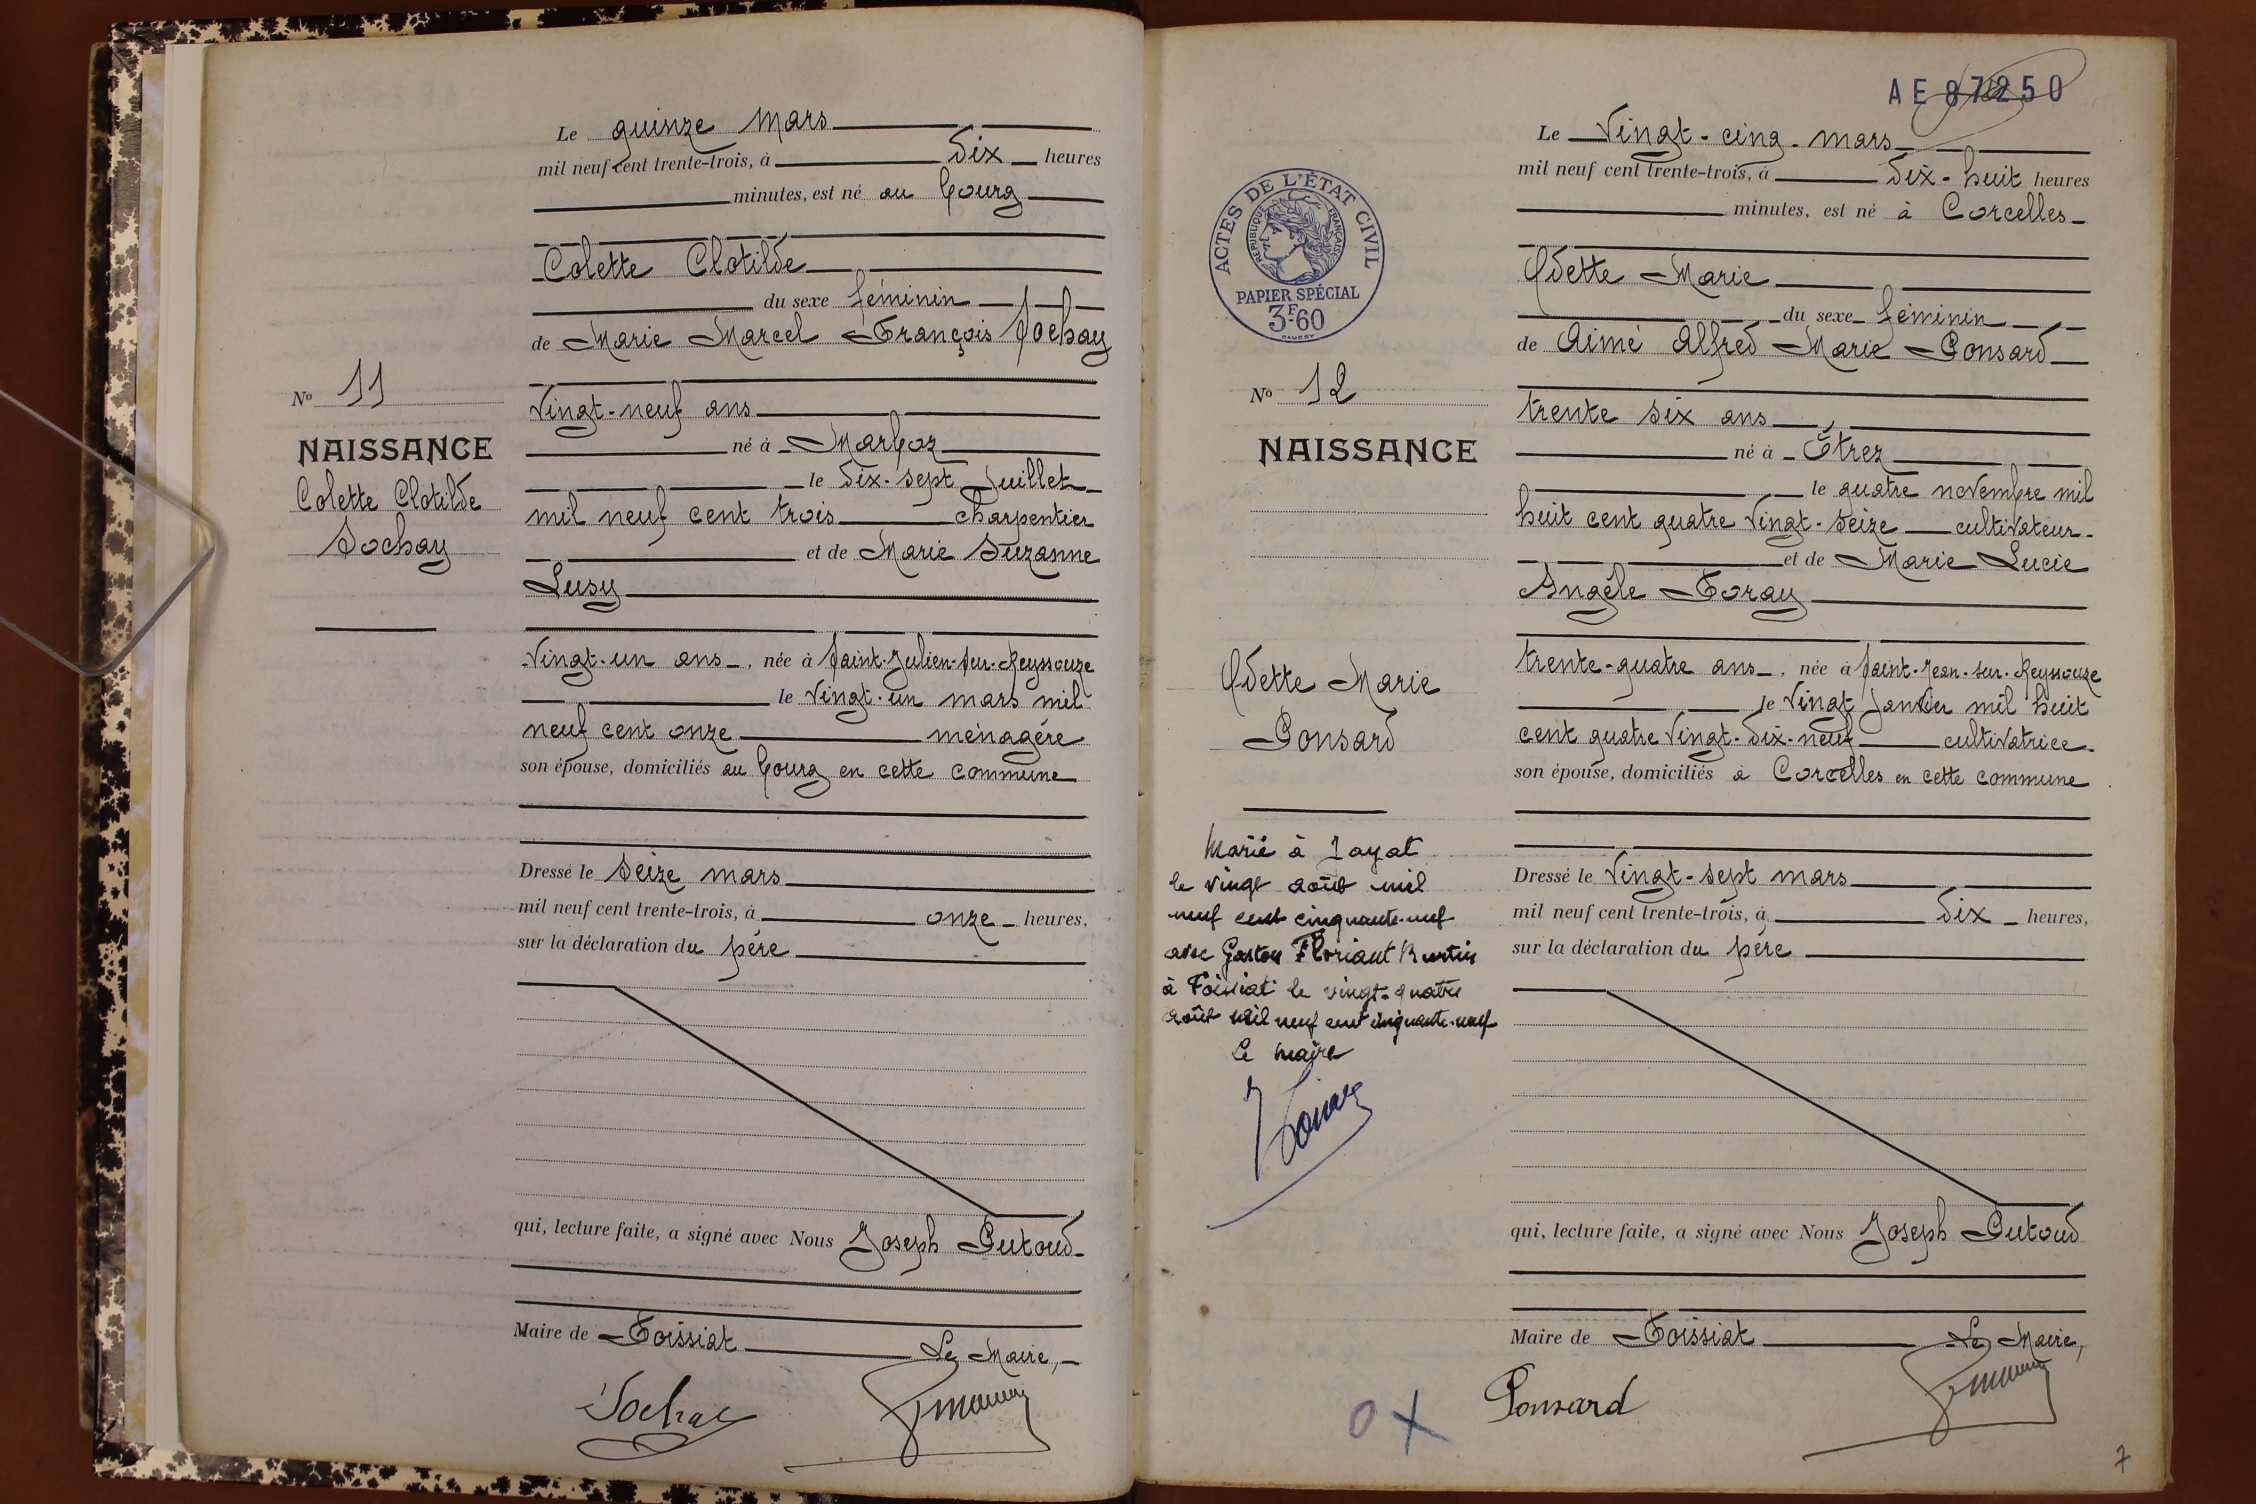 Le quinze mars
mil neuf cent trente-trois, à dix heures
minutes, est né au bourg
Colette Clotilde
du sexe féminin
de Marie Marcel François Sochay
Vingt-neuf ans
né à Marboz
le dix-sept Juillet
mil neuf cent trois charpentier
et de Marie Suzanne
Lusy
Vingt-un ans, née à Saint-Julien-sur-Reyssouze
le vingt-un mars mil
neuf cent onze ménagère
son épouse, domiciliés au bourg en cette commune
Dressé le seize mars
mil neuf cent trente-trois, à onze heures,
sur la déclaration du père
qui, lecture faite, a signé avec Nous Joseph Putoud
Maire de Foissiat Le Maire,
Sochay
No 11
NAISSANCE
Colette Clotilde
Sochay
AE 87250
Le Vingt-cinq-mars
mil neuf cent trente-trois, à dix-huit heures
minutes, est né à Corcelles
Odette Marie
du sexe féminin
de Aimé Alfred Marie Ponsard
trente six ans
né à Étrez
le quatre novembre mil
huit cent quatre vingt-seize cultivateur
et de Marie Lucie
Angèle Foray
trente-quatre ans, née à Saint-Jean-sur-Reyssouze
le Vingt Janvier mil huit
cent quatre vingt-dix-neuf cultivatrice
son épouse, domiciliés à Corcelles en cette commune
Dressé le Vingt-sept mars
mil neuf cent trente-trois, à dix heures,
sur la déclaration du père
qui, lecture faite, a signé avec Nous Joseph Putoud
Maire de Foissiat Le Maire,
Ponsard
ACTES DE L'ÉTAT CIVIL
RÉPUBLIQUE FRANÇAISE
PAPIER SPÉCIAL
3F.60
No 12
NAISSANCE
Odette Marie
Ponsard
Marié à Jayat
le vingt août mil
neuf cent cinquante-neuf
avec Gaston Floriant Burtin
à Foissiat le vingt-quatre
août mil neuf cent cinquante-neuf
Le Maire
0 X
7